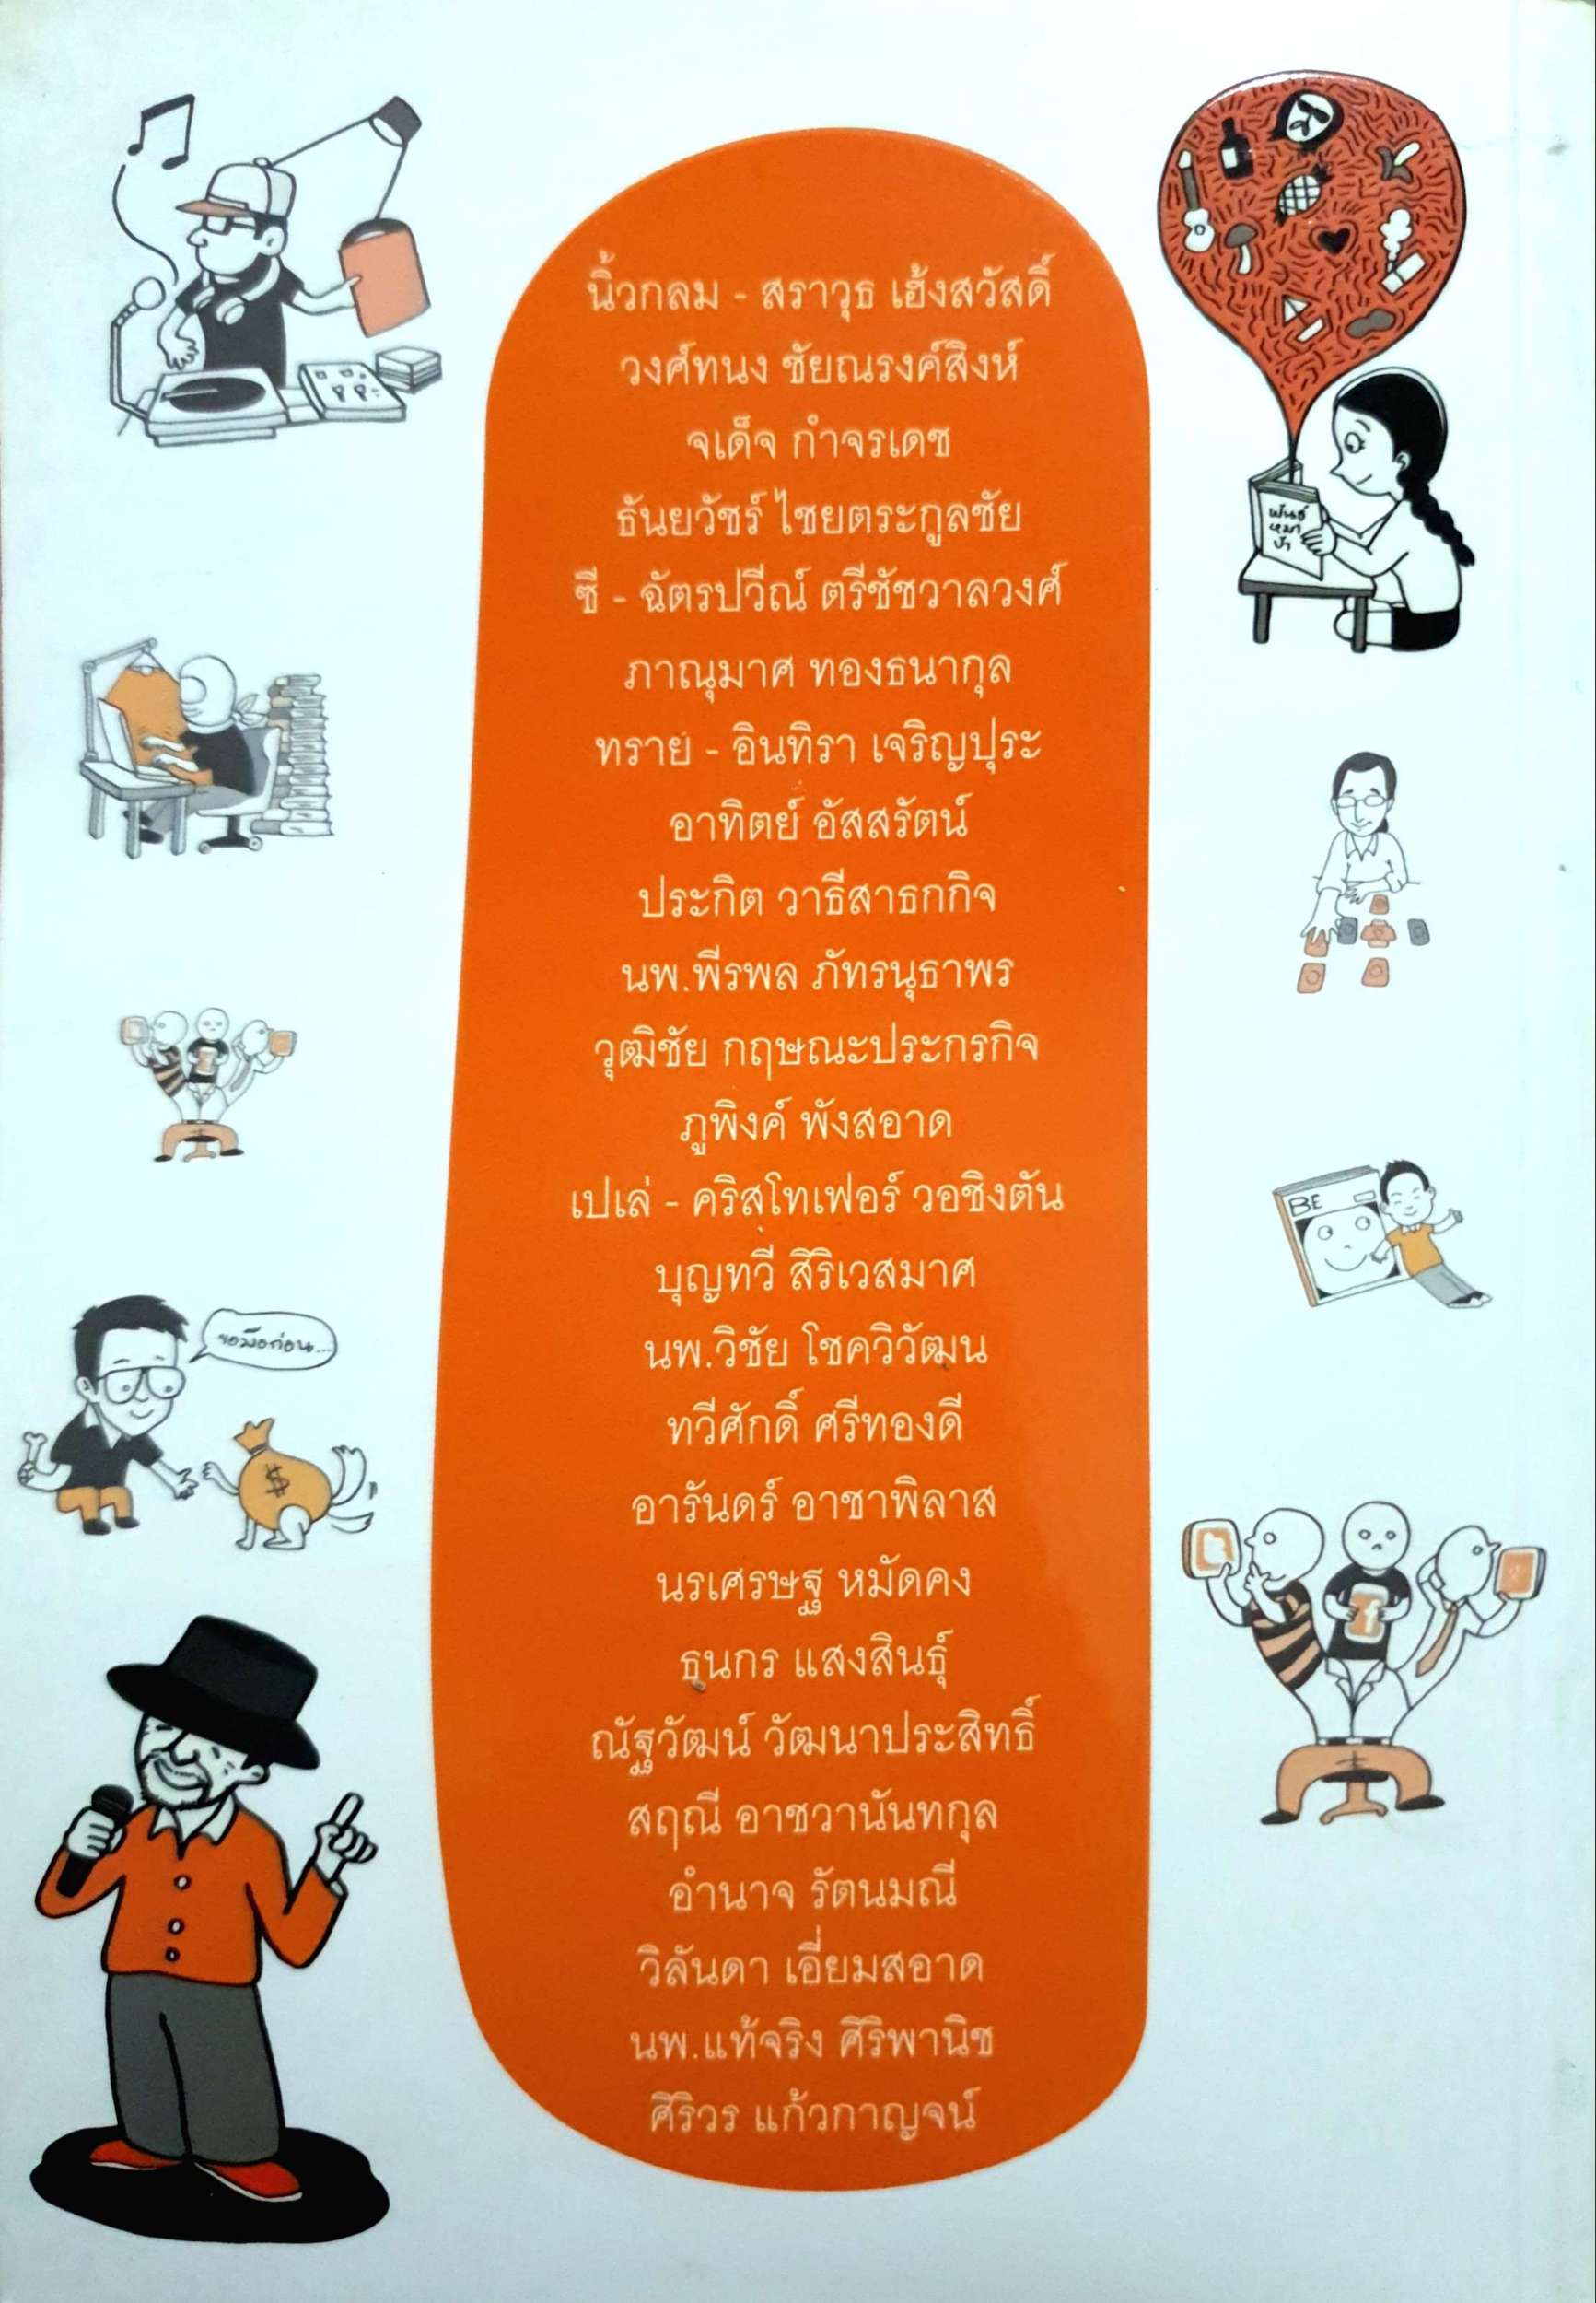 นิ้วกลม - สราวุธ เฮ้งสวัสดิ์
วงศ์ทนง ชัยณรงค์สิงห์
จเด็จ กำจรเดช
ธันยวัชร์ ไชยตระกูลชัย
ซี - ฉัตรปวีณ์ ตรีชัชวาลวงศ์
ภาณุมาศ ทองธนากุล
ทราย - อินทิรา เจริญปุระ
อาทิตย์ อัสสรัตน์
ประกิต วาธีสาธกกิจ
นพ.พีรพล ภัทรนุธาพร
วุฒิชัย กฤษณะประกรกิจ
ภูพิงค์ พังสอาด
เปเล่ - คริสโทเฟอร์ วอชิงตัน
บุญทวี สิริเวสมาศ
นพ.วิชัย โชควิวัฒน
ทวีศักดิ์ ศรีทองดี
อารันดร์ อาชาพิลาส
นรเศรษฐ หมัดคง
ธนกร แสงสินธุ์
ณัฐวัฒน์ วัฒนาประสิทธิ์
สฤณี อาชวานันทกุล
อำนาจ รัตนมณี
วิลันดา เอี่ยมสอาด
นพ.แท้จริง ศิริพานิช
ศิริวร แก้วกาญจน์
พันธุ์
หมา
บ้า
BE
ขอมือก่อน...
$
f